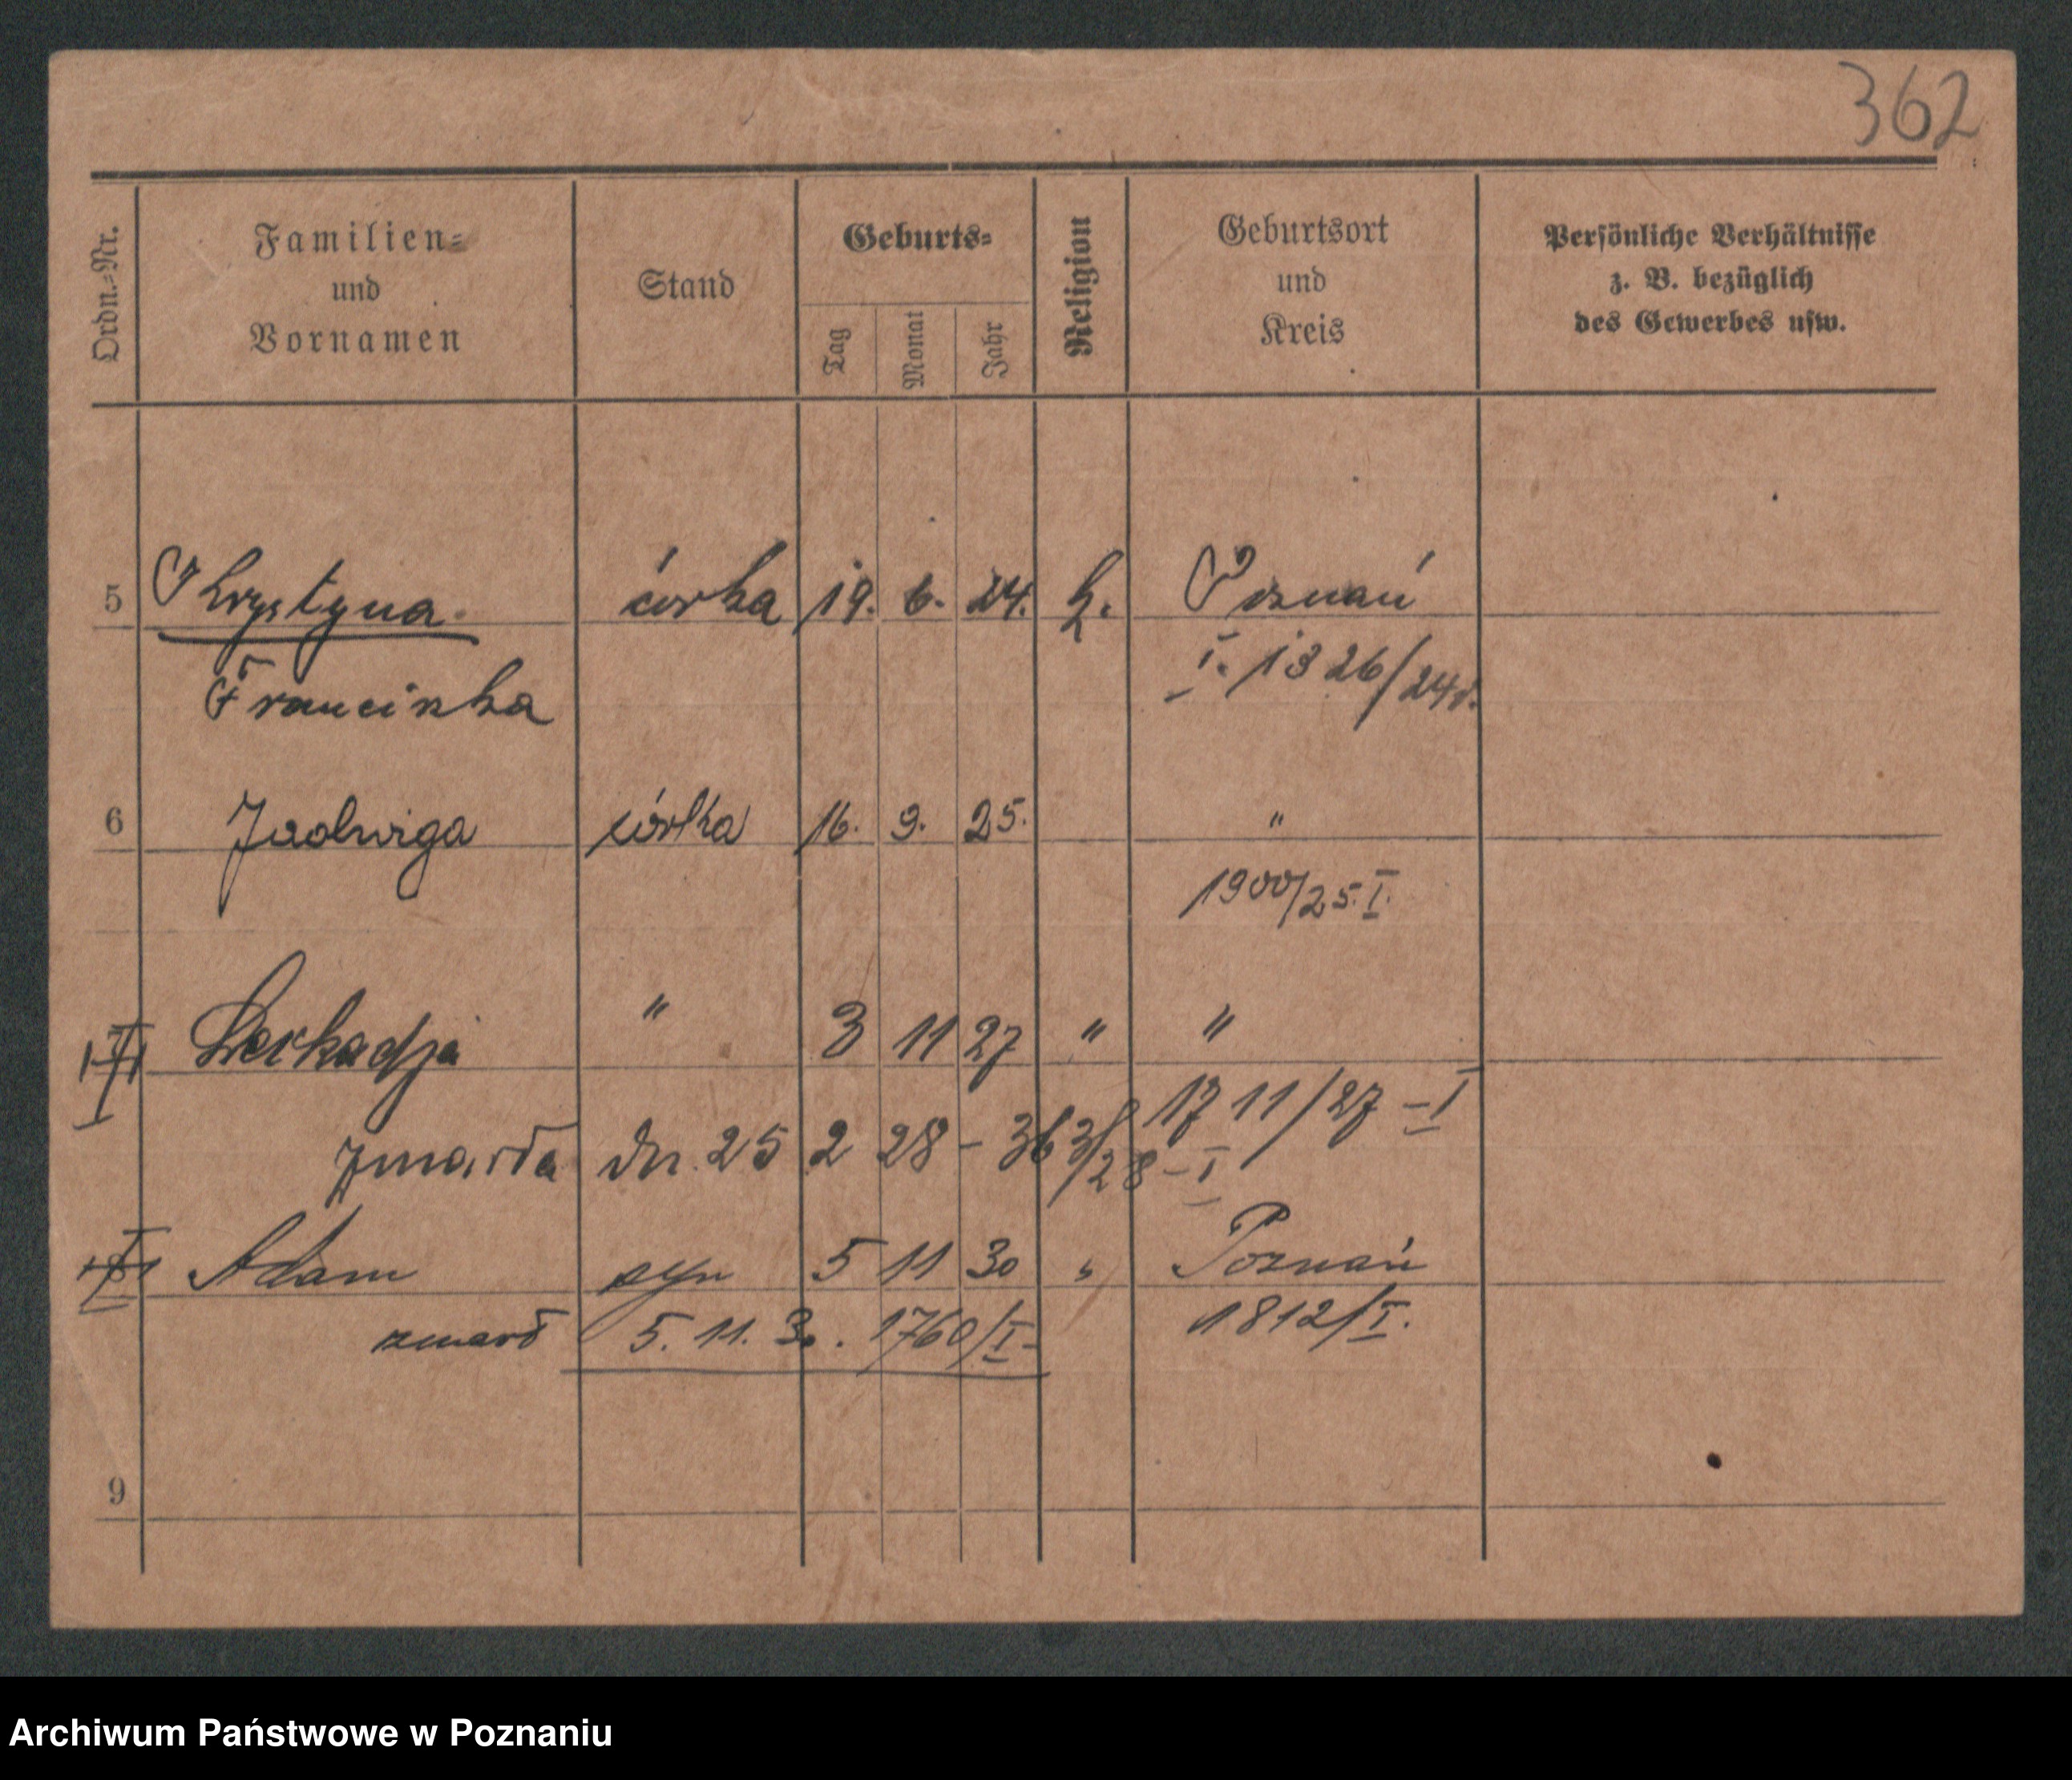 362
Ordn.-Nr.
Familien- und Vornamen
Stand
Geburts-
Tag
Monat
Jahr
Religion
Geburtsort und Kreis
Persönliche Verhältnisse z. B. bezüglich des Gewerbes usw.
5 Krystyna córka 19. 6. 24. k. Poznań
Franciszka I. 1326/24
6 Jadwiga córka 16. 9. 25. "
1900/25. I.
7 Leokadja " 3 11 27 " "
1711/27 – I
zmarła dn. 25 2 28 – 363/28 – I
8 Adam syn 5 11 30 " Poznań
zmarł 5. 11. 30. 1760/I 1812/I.
9
Archiwum Państwowe w Poznaniu